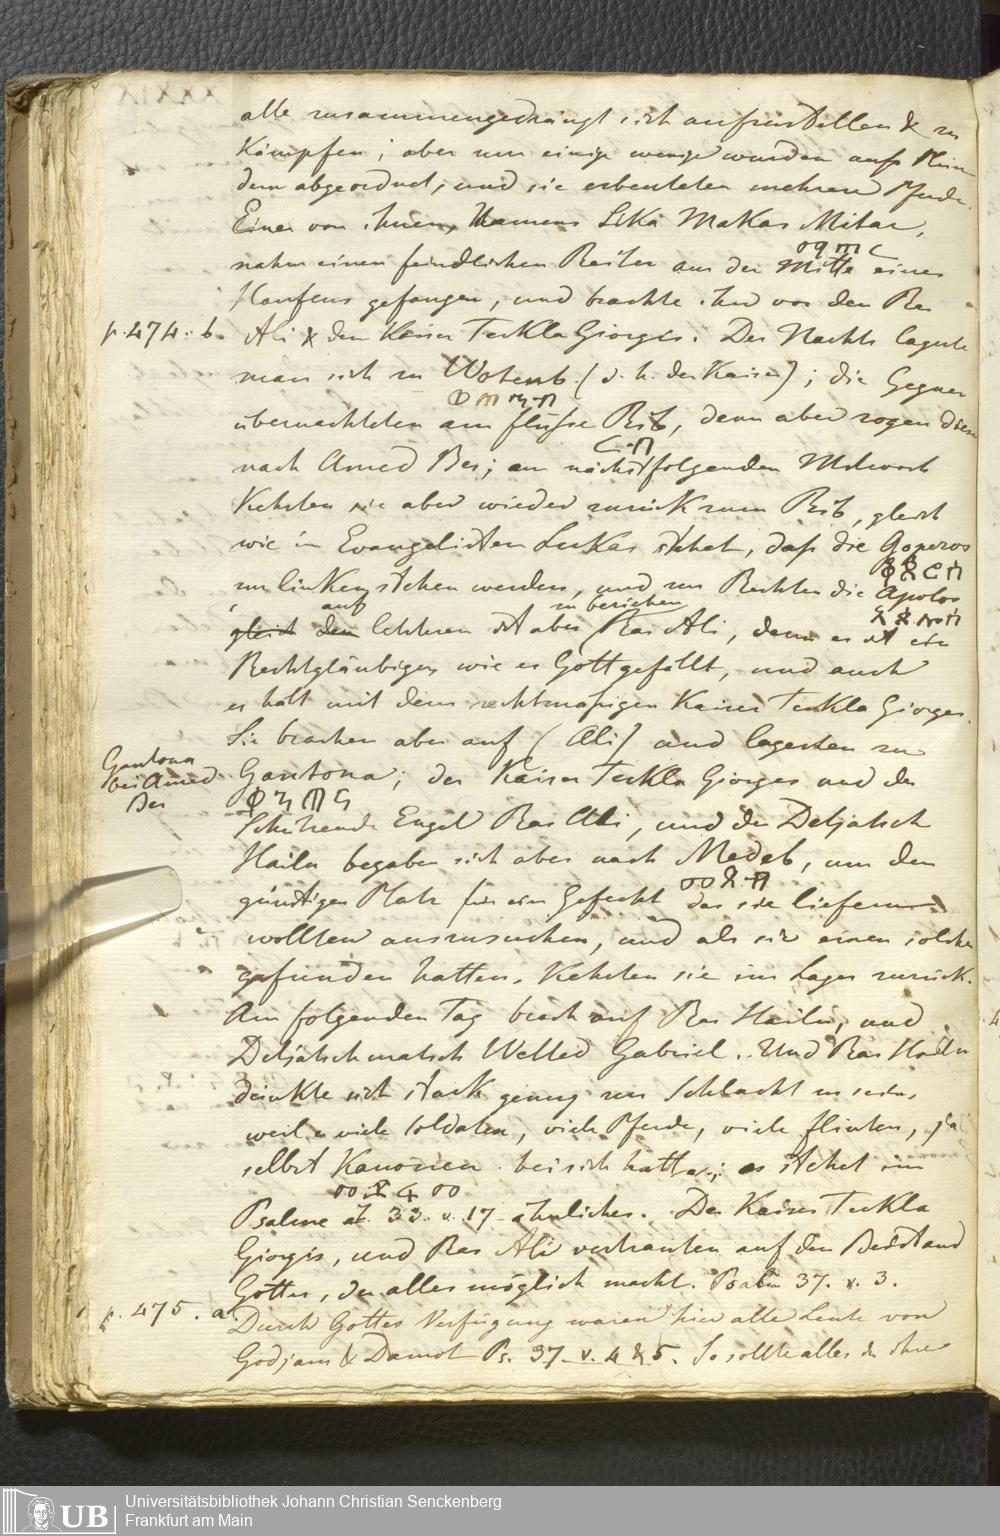 alle zusammengedrängt sich aufzustellen & zu
Kämpfen; aber nur einige wenige wurden aufs Plün
dern abgeordnet, und sie erbeuteten mehrere Pferde.
Einer von ihnen, Namens Lika Makas Mitar,
nahm einen feindlichen Reiter aus der Mitte eines
Haufens gefangen, und brachte ihn vor den Ras
p. 474. b. Ali & den Kaiser Teckla Giorgis. Des Nachts lagerte
man sich zu Wotenb (d. h. der Kaiser); die Gegner
übernachteten am flusse Rib, denn aber zogen diese
ርብ
nach Amed Ber; am nächstfolgenden Mitwoch
Kehrten sie aber wieder zurück zum Rib, gleich
wie im Evangelisten Lukas stehet, dass die
zur linken stehen werden, und zur Rechten die
auf zu beziehen
gleich den letzteren ist aber Ras Ali, denn es ist ein
Rechtgläubiger, wie es Gott gefällt, und auch
er hält mit dem rechtmäsigen Kaiser Teckla Giorges.
Sie brachen aber auf (Ali) und lagerten zu
Gantona
bei Amed
Ber
Gantona; der Kaiser Teckla Giorges und der
Schützende Engel Ras Ali, und der Detjatsch
Hailu begaben sich aber nach Medeb, um den
günstigen Platz für ein Gefecht das sie liefern
wollten auszusuchen, und als sie einen solchen
gefunden hatten, Kehrten sie ins Lager zurück.
Am folgenden Tag brach auf Ras Hailu, und
Detjatschmatsch Welled Gabriel. Und Ras Hailu
dünkte sich stark genug zur Schlacht zu sein,
weil er viele Soldaten, viele Pferde, viele flinten, ja
selbst Kanonen bei sich hatte; es stehet im
Psalme 33. v. 17 ähnliches. Der Kaiser Teckla
Giorgis, und Ras Ali vertrauten auf den Beistand
Gottes, der alles möglich macht. Psalm 37. v. 3.
p. 475. a. Durch Gottes Verfügung waren hier alle Leute von
Godjam & Damot Ps. 37. v. 4 & 5. So sollte alles
UB
Universitätsbibliothek Johann Christian Senckenberg
Frankfurt am Main